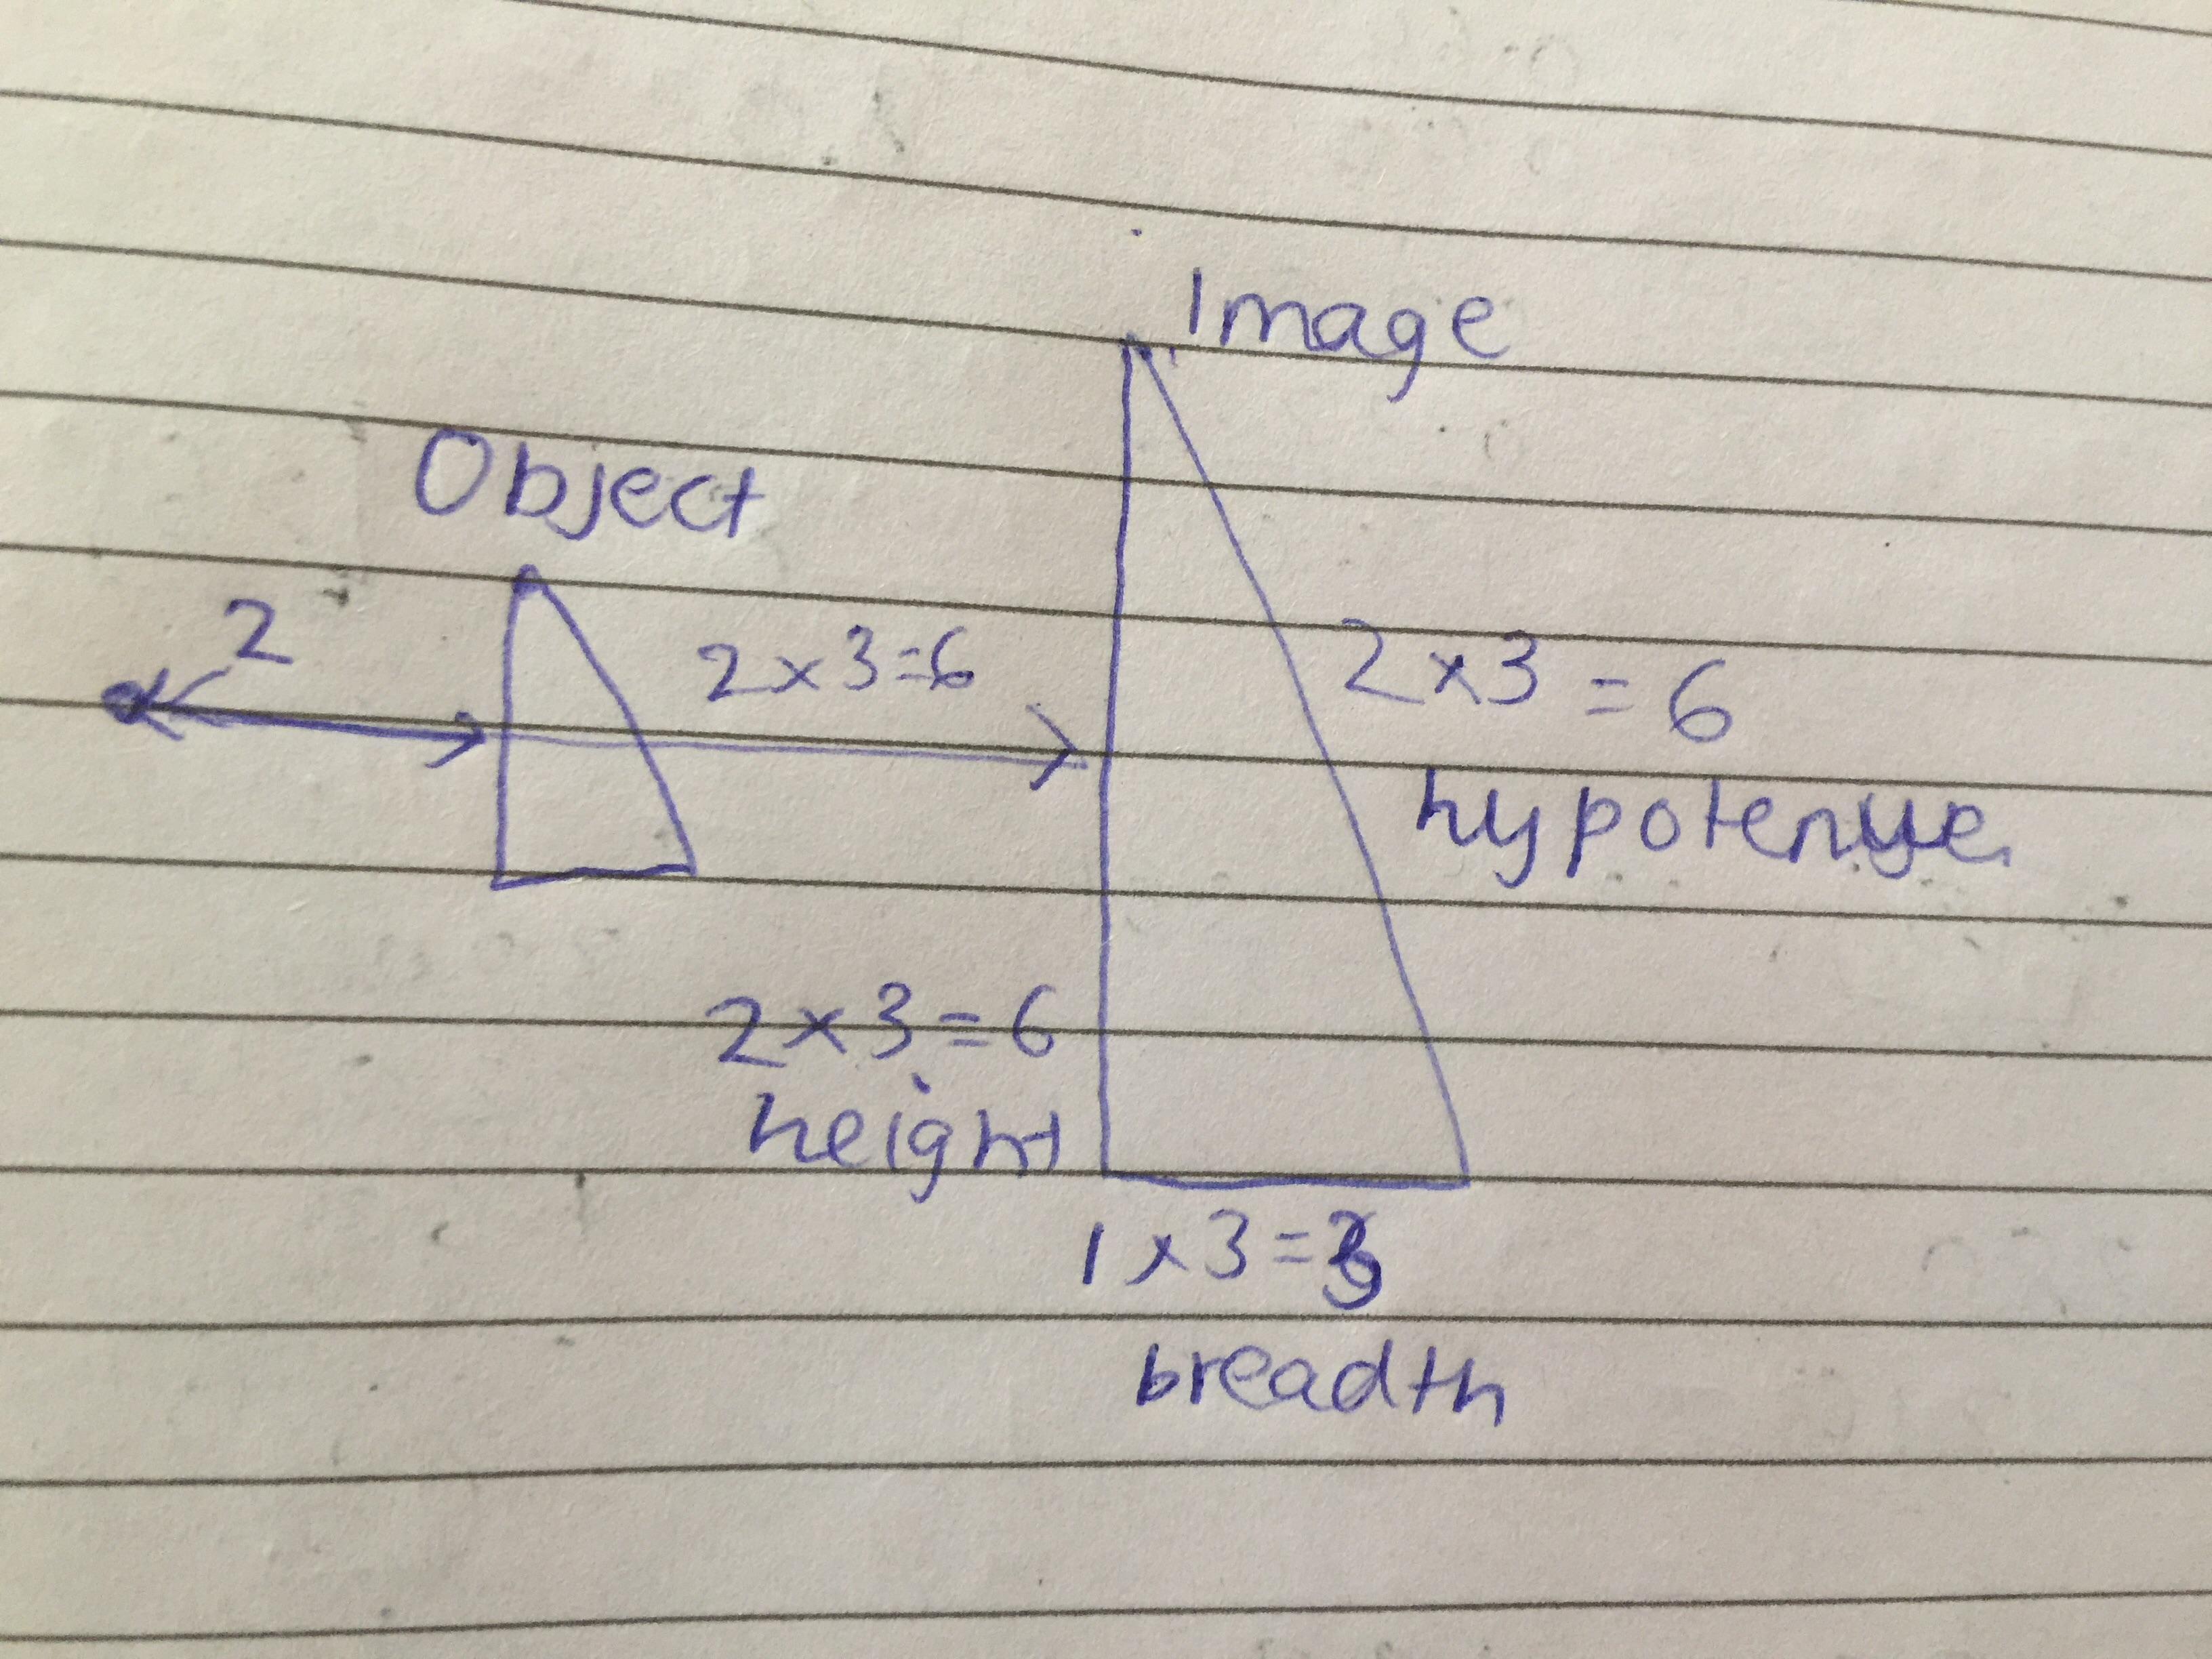 Image
Object
2
2x3=6
2x3=6
hypotenuse
2x3=6
height
1x3=3
breadth